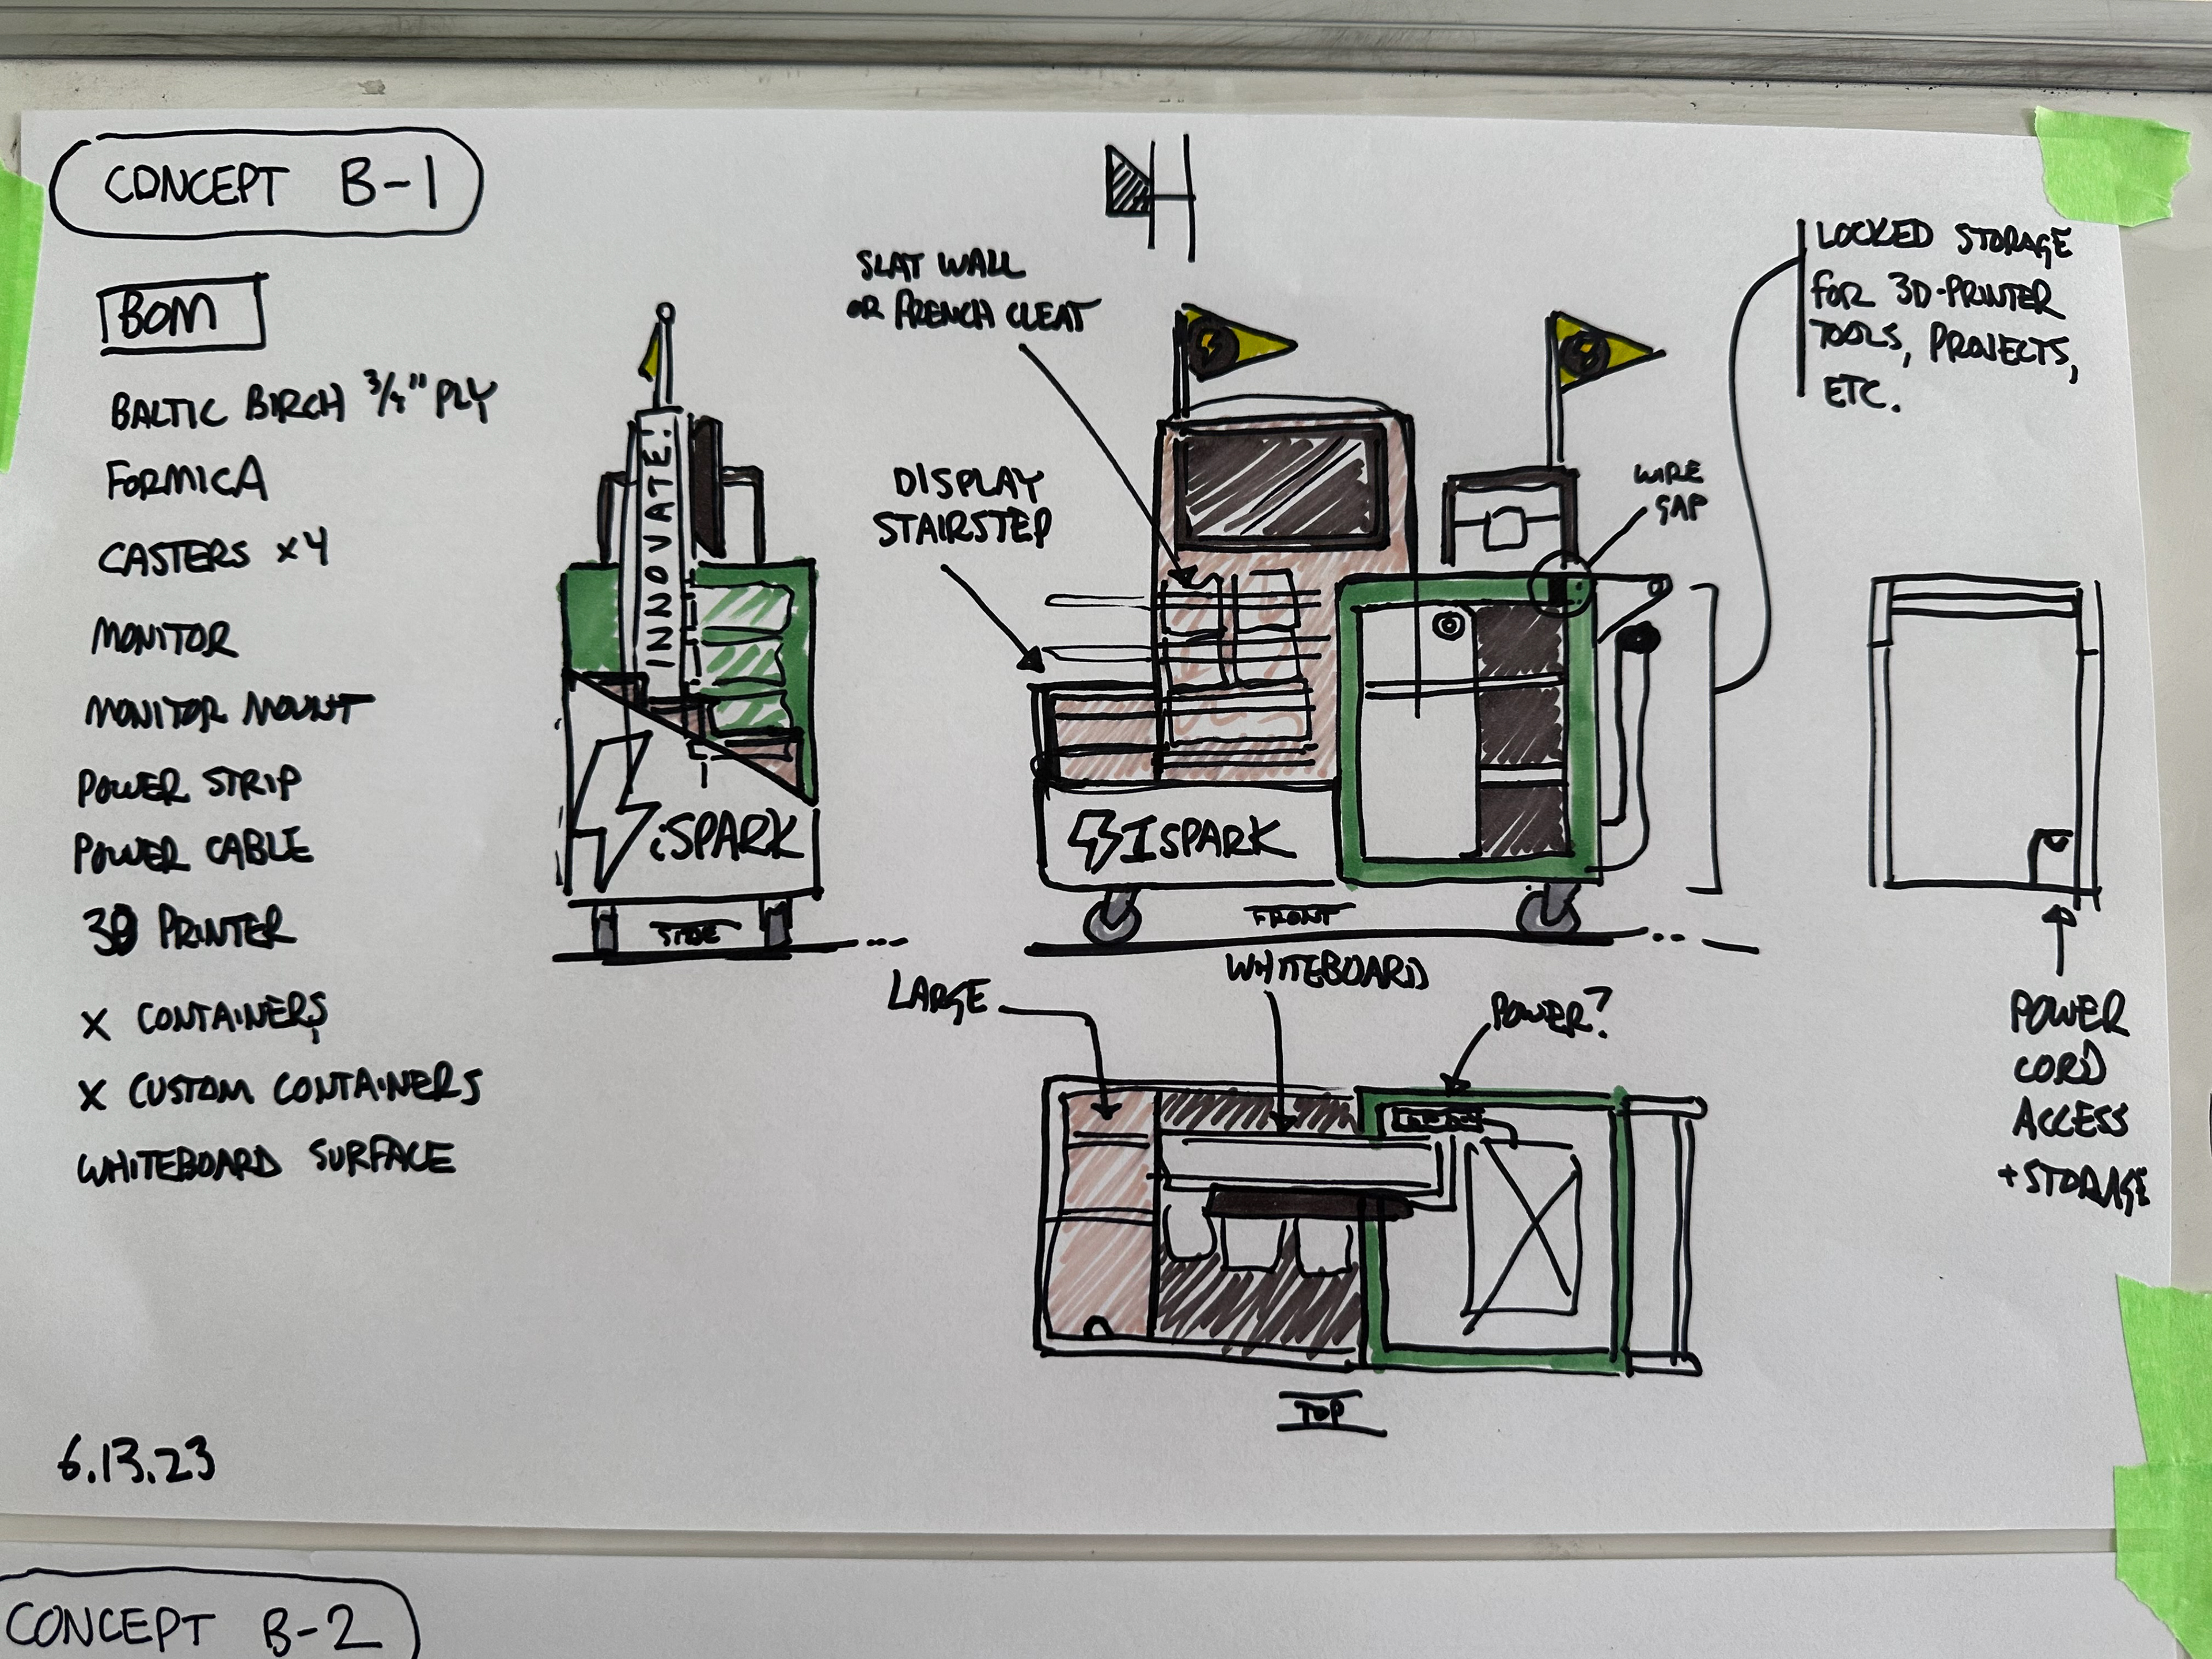 CONCEPT B-1
BOM
BALTIC BIRCH 3/4" PLY
FORMICA
CASTERS x4
MONITOR
MONITOR MOUNT
POWER STRIP
POWER CABLE
3D PRINTER
X CONTAINERS
X CUSTOM CONTAINERS
WHITEBOARD SURFACE
6.13.23
INNOVATE!
iSPARK
SIDE
SLAT WALL
OR FRENCH CLEAT
DISPLAY
STAIRSTEP
WIRE
GAP
LOCKED STORAGE
FOR 3D-PRINTER
TOOLS, PROJECTS,
ETC.
ISPARK
FRONT
LARGE
WHITEBOARD
POWER?
TOP
POWER
CORD
ACCESS
+ STORAGE
CONCEPT B-2